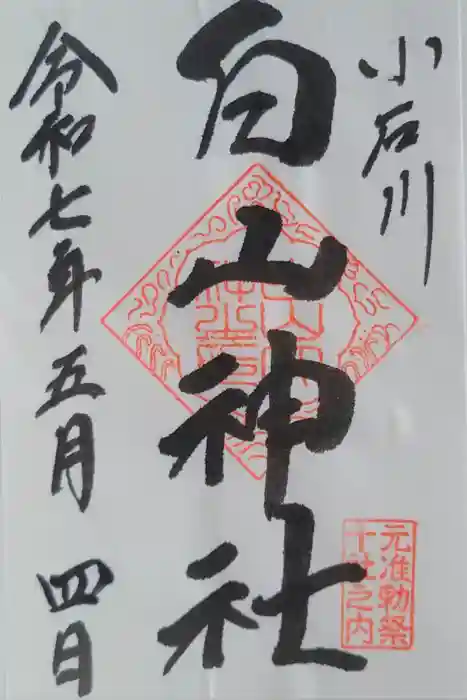 小石川
白山神社
元准勅祭
十社之内
令和七年五月四日